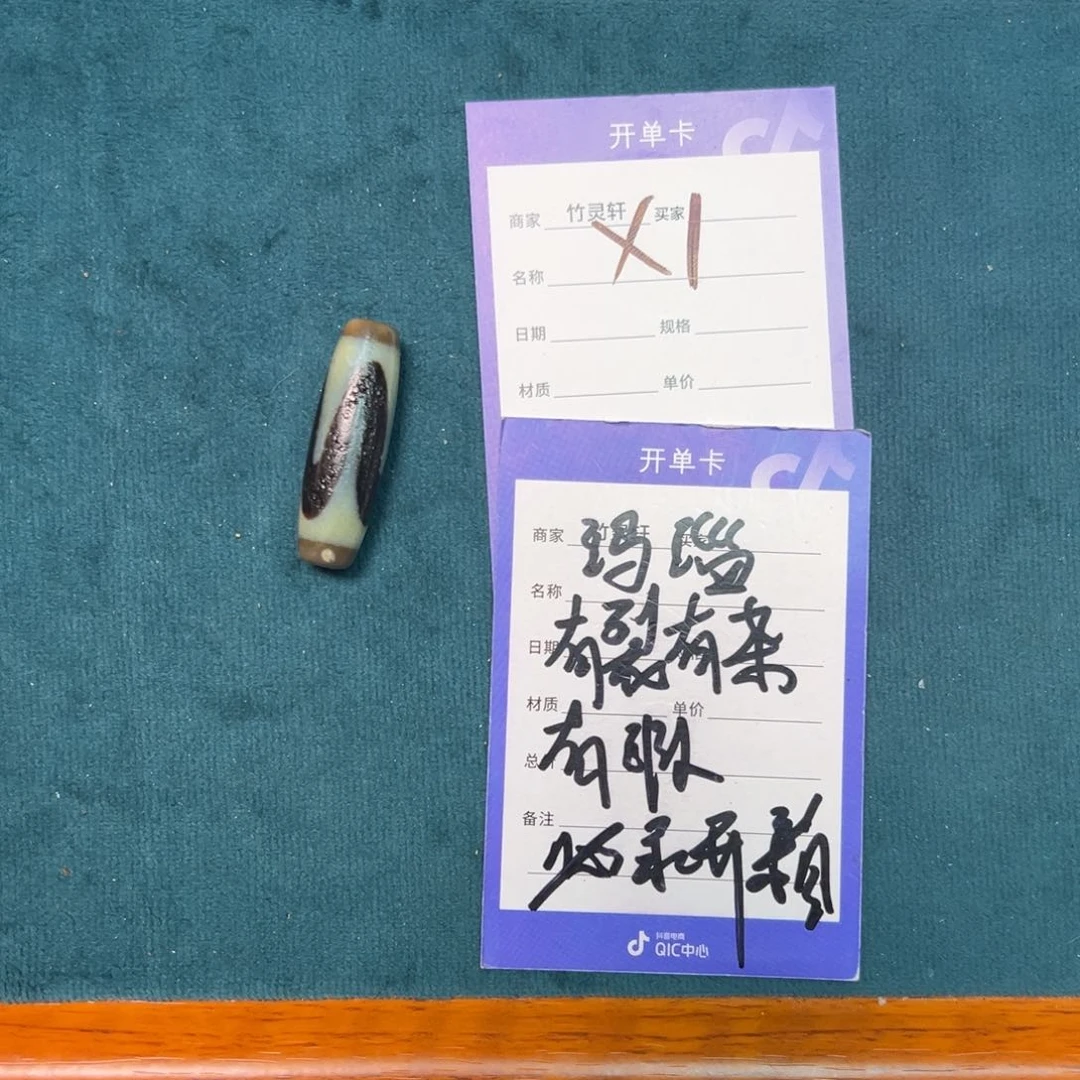 开单卡
商家 竹灵轩 买家
X1
名称
日期 规格
材质 单价
开单卡
商家 竹灵轩
玛瑙
名称
有裂有杂
日期
材质 单价
有瑕
总
备注
必录开
抖音电商
QIC中心